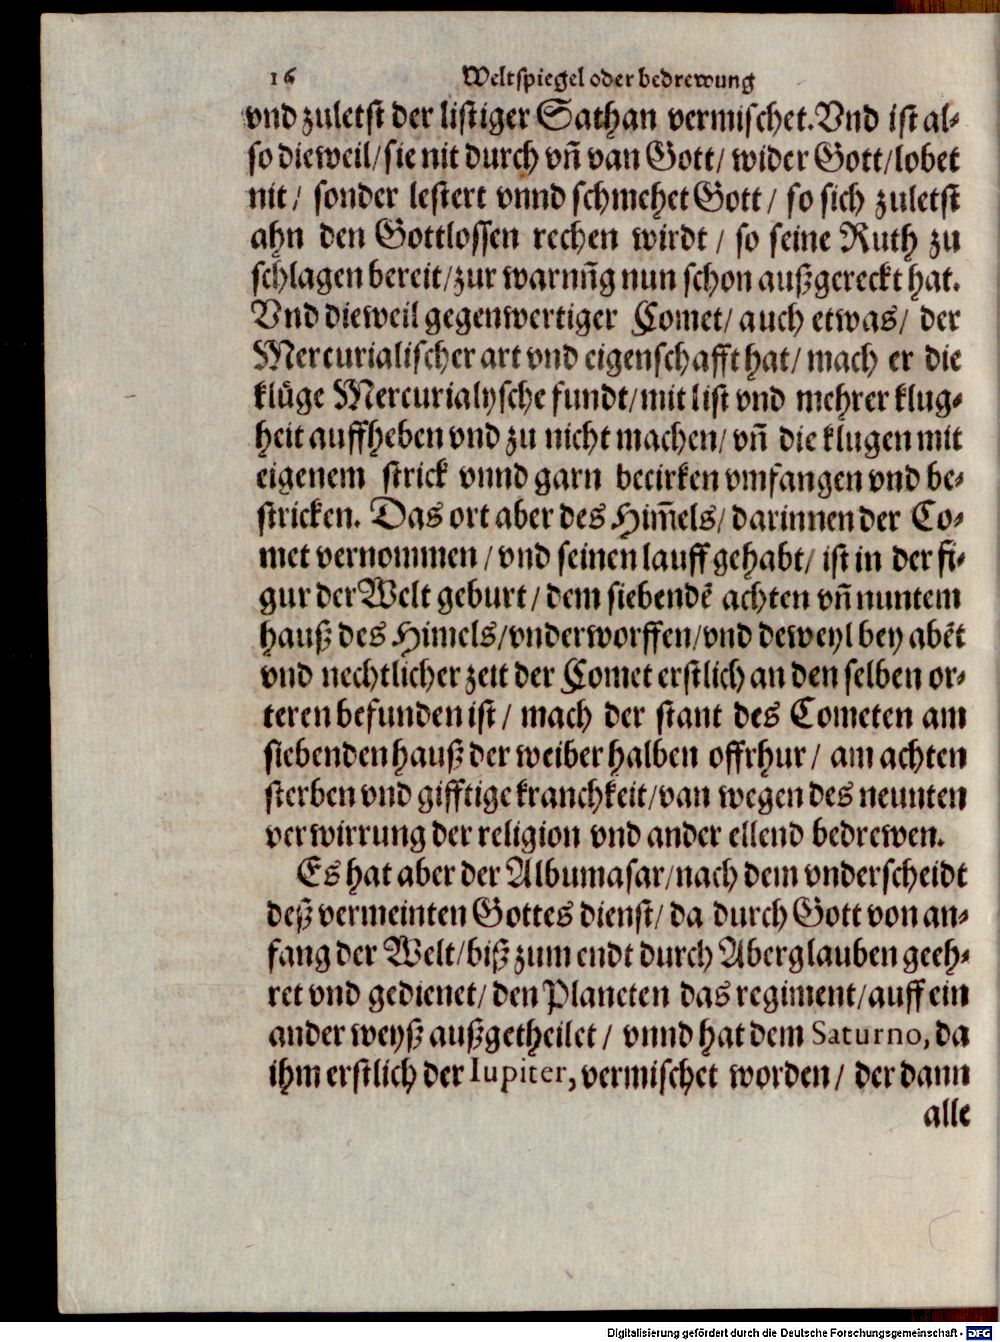 16 Weltspiegel oder bedrewung
vnd zuletst der listiger Sathan vermischet. Vnd ist al-
so dieweil/ sie nit durch vñ van Gott/ wider Gott/ lobet
nit/ sonder lestert vnnd schmehet Gott/ so sich zuletst
ahn den Gottlossen rechen wirdt/ so seine Ruth zu
schlagen bereit/ zur warnũg nun schon außgereckt hat.
Vnd dieweil gegenwertiger Comet/ auch etwas/ der
Mercurialischer art vnd eigenschafft hat/ mach er die
kluͤge Mercurialysche fundt/ mit list vnd mehrer klug-
heit auffheben vnd zu nicht machen/ vñ die klugen mit
eigenem strick vnnd garn becirken vmfangen vnd be-
stricken. Das ort aber des Him̃els/ darinnen der Co-
met vernommen/ vnd seinen lauff gehabt/ ist in der fi-
gur der Welt geburt/ dem siebendẽ achten vñ nuntem
hauß des Himels/ vnderworffen/ vnd deweyl bey abẽt
vnd nechtlicher zeit der Comet erstlich an den selben or-
teren befunden ist/ mach der stant des Cometen am
siebenden hauß der weiber halben offrhur/ am achten
sterben vnd gifftige kranchkeit/ van wegen des neunten
verwirrung der religion vnd ander ellend bedrewen.
Es hat aber der Albumasar/ nach dem vnderscheidt
deß vermeinten Gottes dienst/ da durch Gott von an-
fang der Welt/ biß zum endt durch Aberglauben geeh-
ret vnd gedienet/ den Planeten das regiment/ auff ein
ander weyß außgetheilet/ vnnd hat dem Saturno, da
ihm erstlich der Iupiter, vermischet worden/ der dann
alle
Digitalisierung gefördert durch die Deutsche Forschungsgemeinschaft - DFG